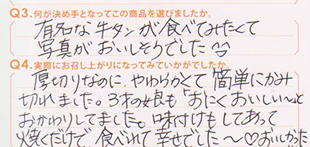 Q3.何が決め手となってこの商品を選びましたか。
有名な牛タンが食べてみたくて
写真がおいしそうでした
Q4.実際にお召し上がりになってみていかがでしたか。
厚切りなのに、やわらかくて簡単にかみ
切れました。3才の娘も「おにくおいしい〜」と
おかわりしてました。味付けもしてあって
焼くだけで、食べれて幸せでした〜♡おいしかった